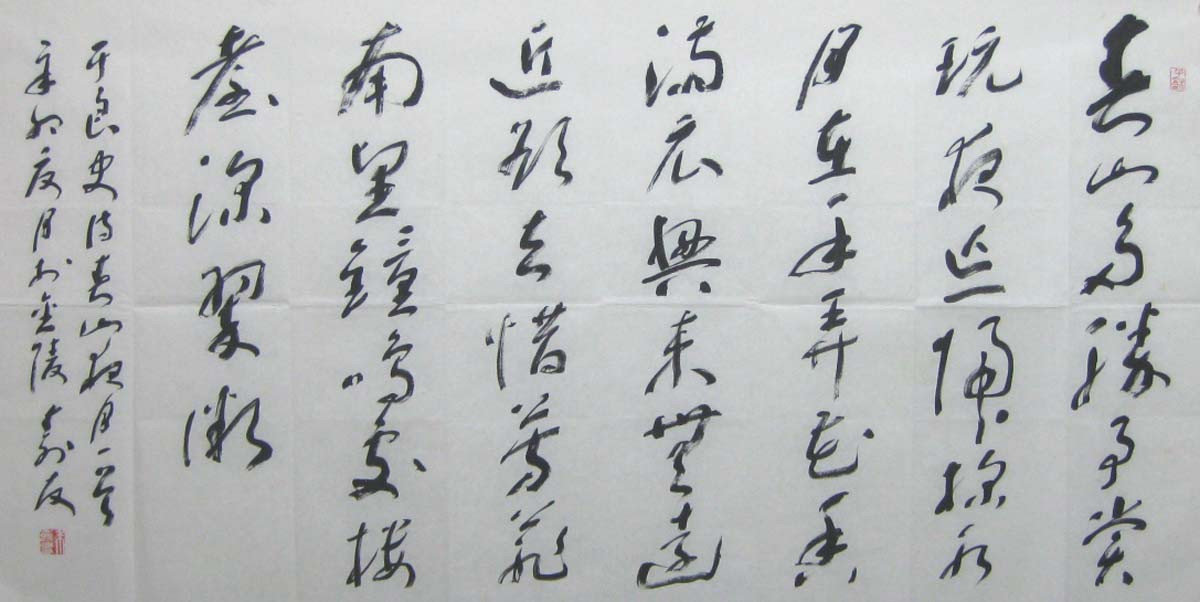 春山多勝事賞
玩夜忘歸掬水
月在手弄花香
滿衣興來無遠
近欲去惜芳菲
南望鐘鳴處樓
臺深翠微
于良史詩春山夜月一首
辛卯夏月於金陵 友